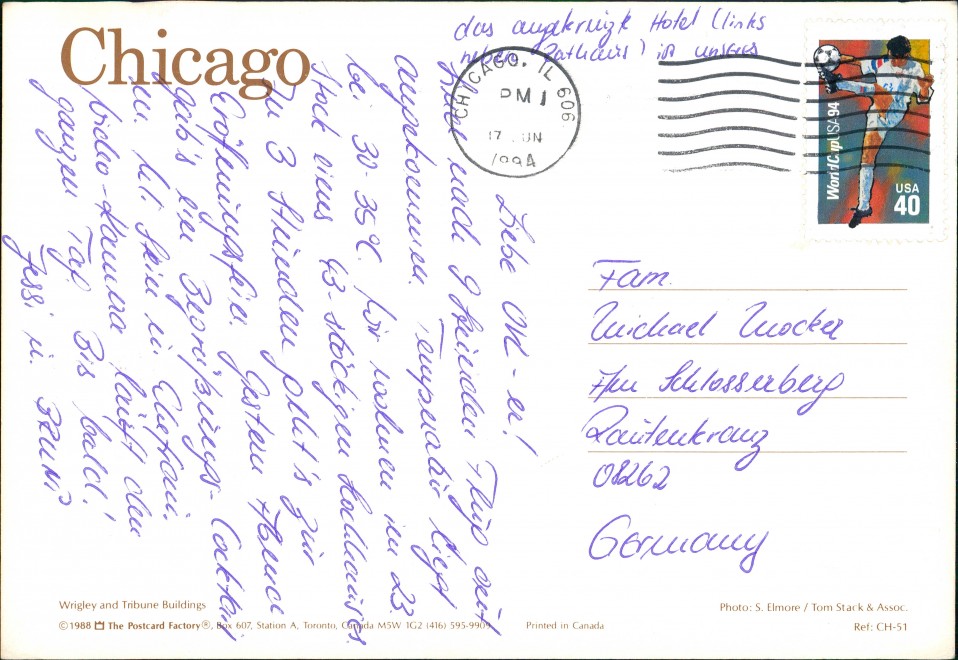 Chicago
das angekreuzte Hotel (links
neben Rathaus) ist unseres
CHICAGO, IL 606
PM 1
17 JUN
1994
WorldCupUSA94
USA
40
Liebe OK-er!
nach 9 Stunden Flug gut
angekommen. Temperatur liegt
bei 30-35°C. Wir wohnen im 23.
Stock eines 43-stöckigen Hochhauses.
In 3 Stunden geht's zur
Eröffnungsfeier. Gestern Abend
gab's 'nen Begrüßungs-Cocktail
m.
Video-Kamera läuft den
ganzen Tag. Bis bald!
Jessi u. BRUNI
Fam.
Michael Mocker
Am Schlosserberg
Rautenkranz
08262
Germany
Wrigley and Tribune Buildings
© 1988 The Postcard Factory®, Box 607, Station A, Toronto, Canada M5W 1G2 (416) 595-9909
Printed in Canada
Photo: S. Elmore / Tom Stack & Assoc.
Ref: CH-51